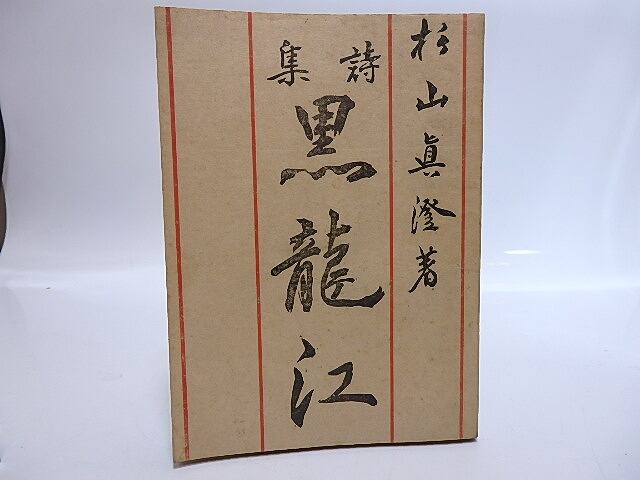 杉山眞澄著
詩集
黒龍江